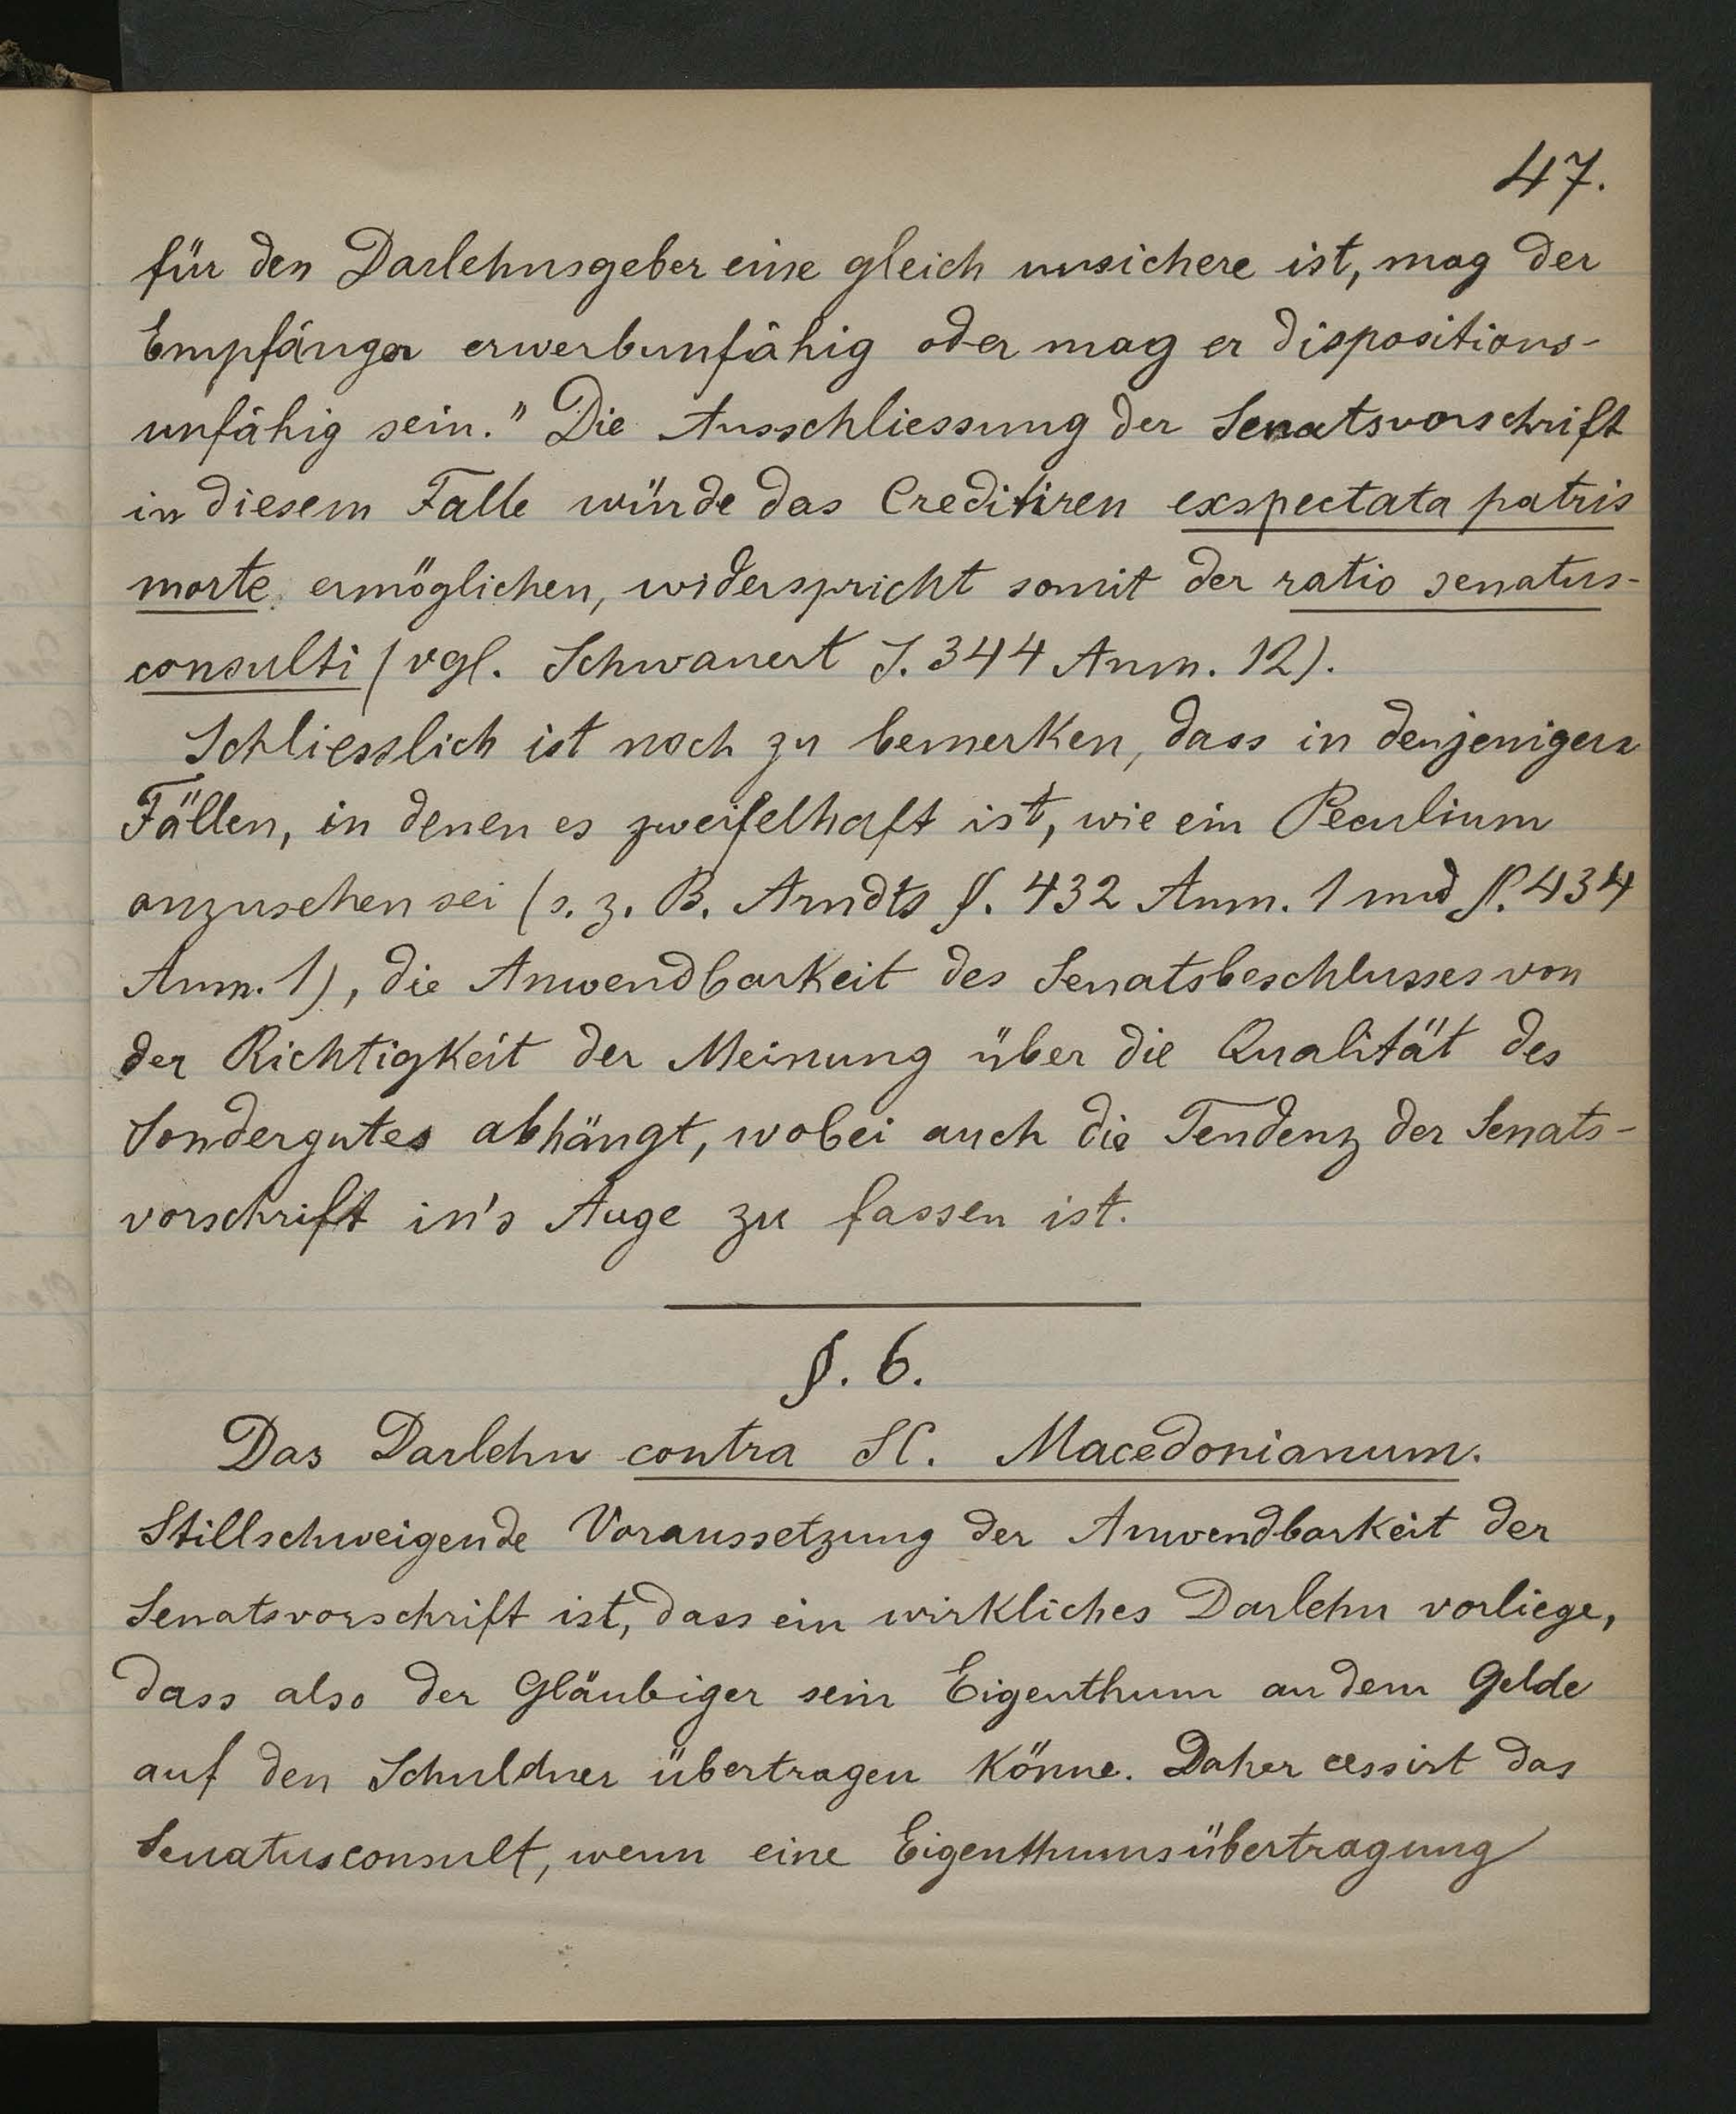 47.
für den Darlehnsgeber eine gleich unsichere ist, mag der
Empfänger erwerbunfähig oder mag er dispositions-
unfähig sein." Die Ausschliessung der Senatsvorschrift
in diesem Falle würde das Creditiren exspectata patris
morte ermöglichen, widerspricht somit der ratio senatus-
consulti (vgl. Schwanert S. 344 Anm. 12).
Schliesslich ist noch zu bemerken, dass in denjenigen
Fällen, in denen es zweifelhaft ist, wie ein Peculium
anzusehen sei (s. z. B. Arndts §. 432 Anm. 1 und §. 434
Anm. 1), die Anwendbarkeit des Senatsbeschlusses von
der Richtigkeit der Meinung über die Qualität des
Sondergutes abhängt, wobei auch die Tendenz der Senats-
vorschrift in's Auge zu fassen ist.
§. 6.
Das Darlehn contra SC. Macedonianum.
Stillschweigende Voraussetzung der Anwendbarkeit der
Senatsvorschrift ist, dass ein wirkliches Darlehn vorliege,
dass also der Gläubiger sein Eigenthum an dem Gelde
auf den Schuldner übertragen könne. Daher cessirt das
Senatusconsult, wenn eine Eigenthumsübertragung